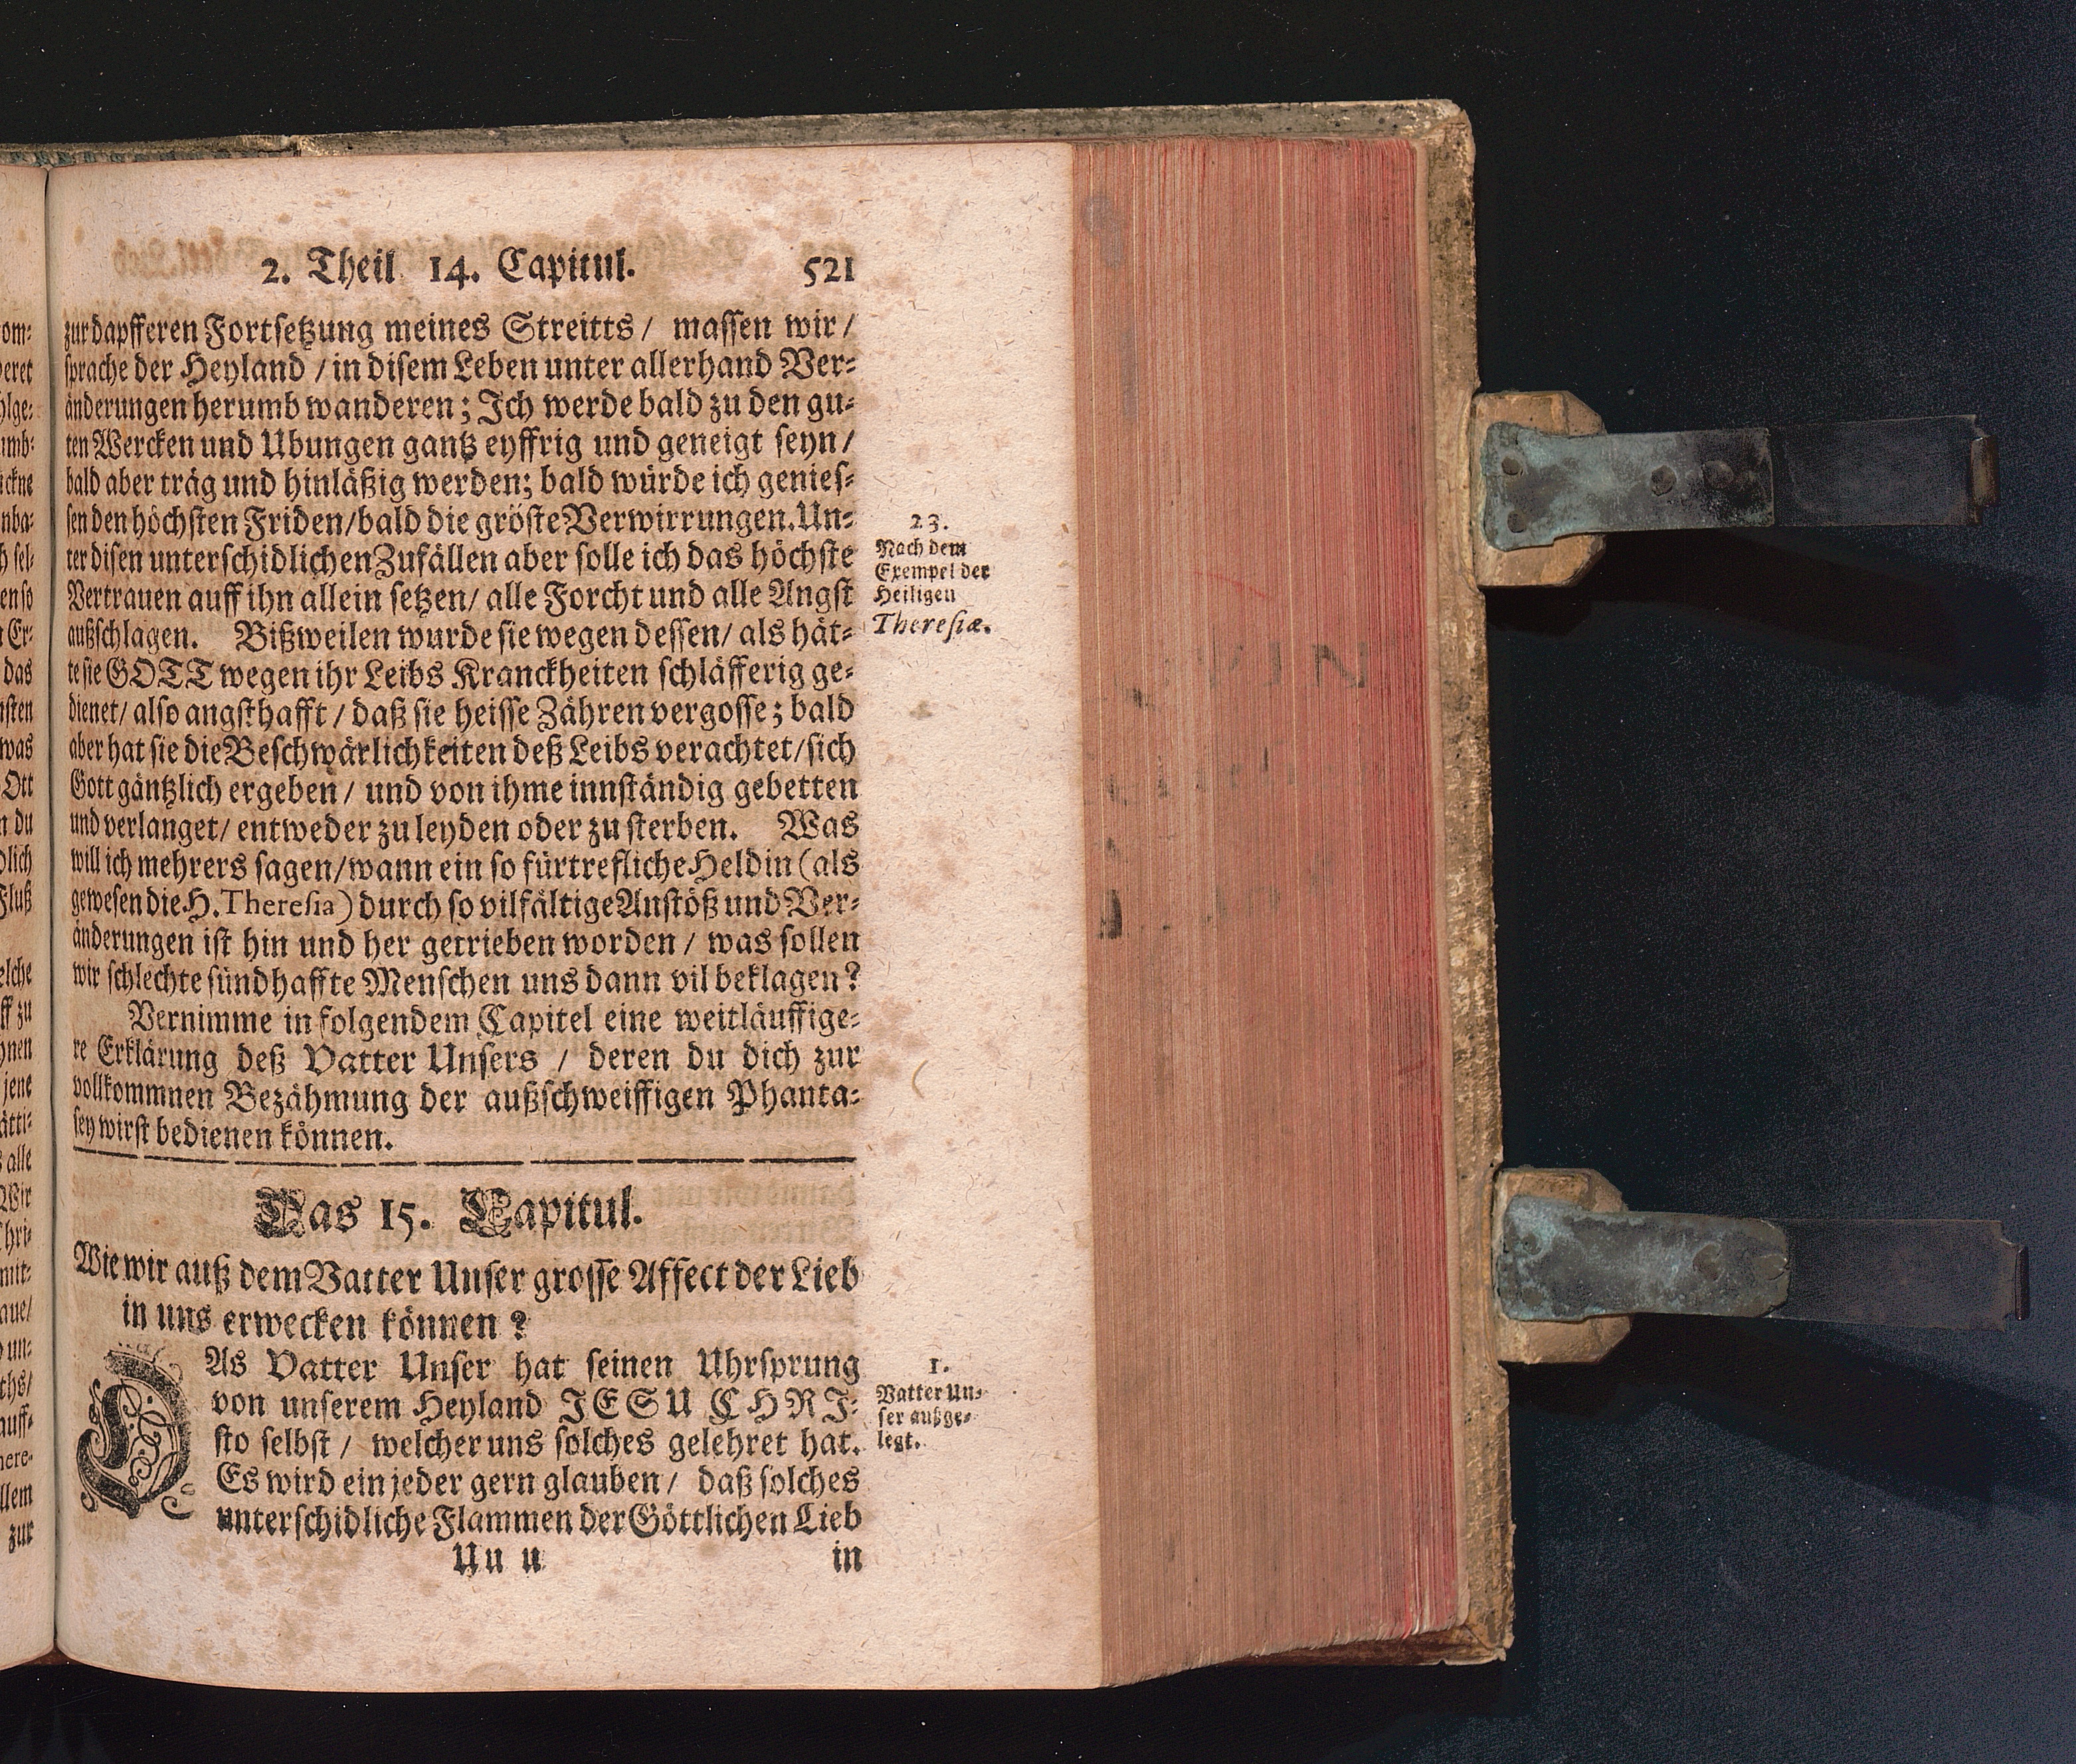 2. Theil 14. Capitul. 521
zur dapfferen Fortsetzung meines Streitts / massen wir /
sprache der Heyland / in disem Leben unter allerhand Ver-
änderungen herumb wanderen; Ich werde bald zu den gu-
ten Wercken und Ubungen gantz eyffrig und geneigt seyn /
bald aber träg und hinläßig werden; bald würde ich genies-
sen den höchsten Friden / bald die gröste Verwirrungen. Un-
ter disen unterschidlichen Zufällen aber solle ich das höchste
Vertrauen auff ihn allein setzen / alle Forcht und alle Angst
außschlagen. Bißweilen wurde sie wegen dessen / als hät-
te sie GOTT wegen ihr Leibs Kranckheiten schläfferig ge-
dienet / also angsthafft / daß sie heisse Zähren vergosse; bald
aber hat sie die Beschwärlichkeiten deß Leibs verachtet / sich
Gott gäntzlich ergeben / und von ihme innständig gebetten
und verlanget / entweder zu leyden oder zu sterben. Was
will ich mehrers sagen / wann ein so fürtrefliche Heldin (als
gewesen die H. Theresia) durch so vilfältige Anstöß und Ver-
änderungen ist hin und her getrieben worden / was sollen
wir schlechte sündhaffte Menschen uns dann vil beklagen?
Vernimme in folgendem Capitel eine weitläuffige-
re Erklärung deß Vatter Unsers / deren du dich zur
vollkommnen Bezähmung der außschweiffigen Phanta-
sey wirst bedienen können.
23.
Nach dem
Exempel der
Heiligen
Theresiæ.
Das 15. Capitul.
Wie wir auß dem Vatter Unser grosse Affect der Lieb
in uns erwecken können?
DAs Vatter Unser hat seinen Uhrsprung
von unserem Heyland JESU CHRI-
sto selbst / welcher uns solches gelehret hat.
Es wird ein jeder gern glauben / daß solches
unterschidliche Flammen der Göttlichen Lieb
1.
Vatter Un-
ser außge-
legt.
Uu u in